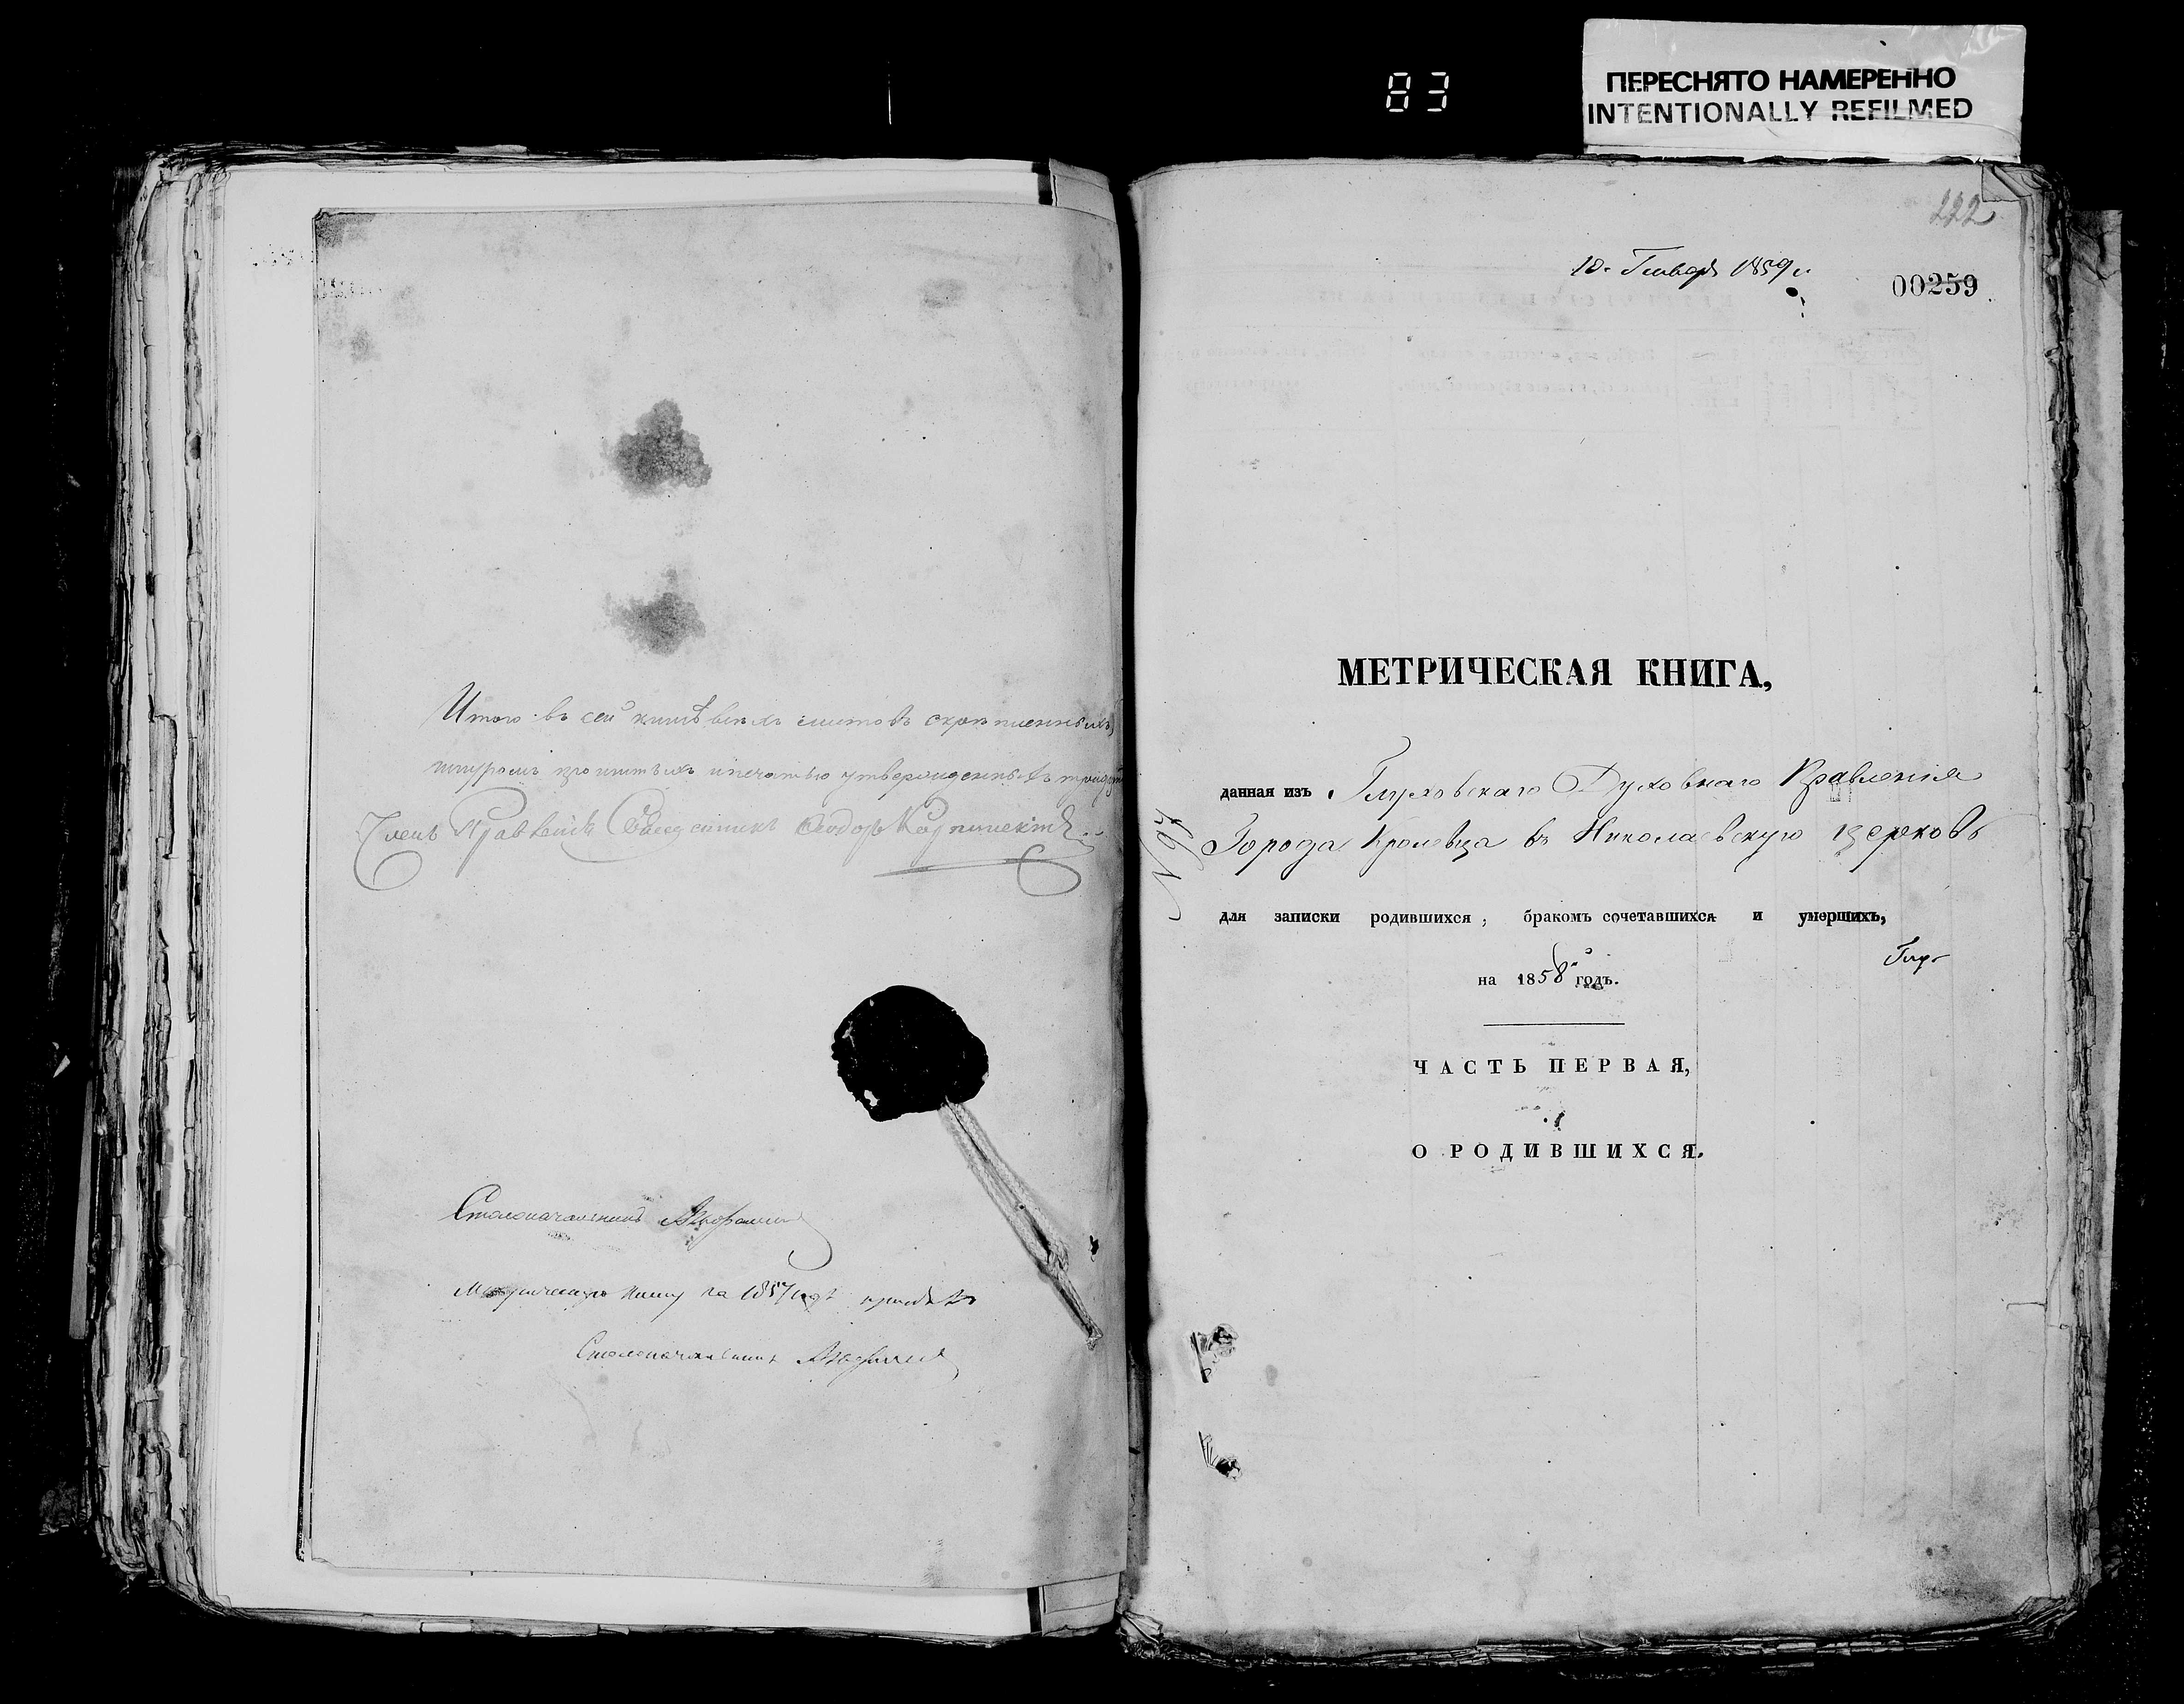 83
ПЕРЕСНЯТО НАМЕРЕННО
INTENTIONALLY REFILMED
Итого въ сей книгѣ всѣхъ листовъ скрѣпленныхъ,
шнуромъ прошитыхъ и печатью утвержденныхъ
Членъ Правленія Священникъ Ѳеодоръ
Столоначальникъ
Метрическую книгу за 1857 годъ
Столоначальникъ
222
10. Генваря 1859 г.
00259
МЕТРИЧЕСКАЯ КНИГА,
данная изъ Глуховскаго Духовнаго Правленія
Города Кролевца въ Николаевскую церковь
N 97
для записки родившихся, бракомъ сочетавшихся и умершихъ,
на 1858й годъ.
ЧАСТЬ ПЕРВАЯ,
О РОДИВШИХСЯ.